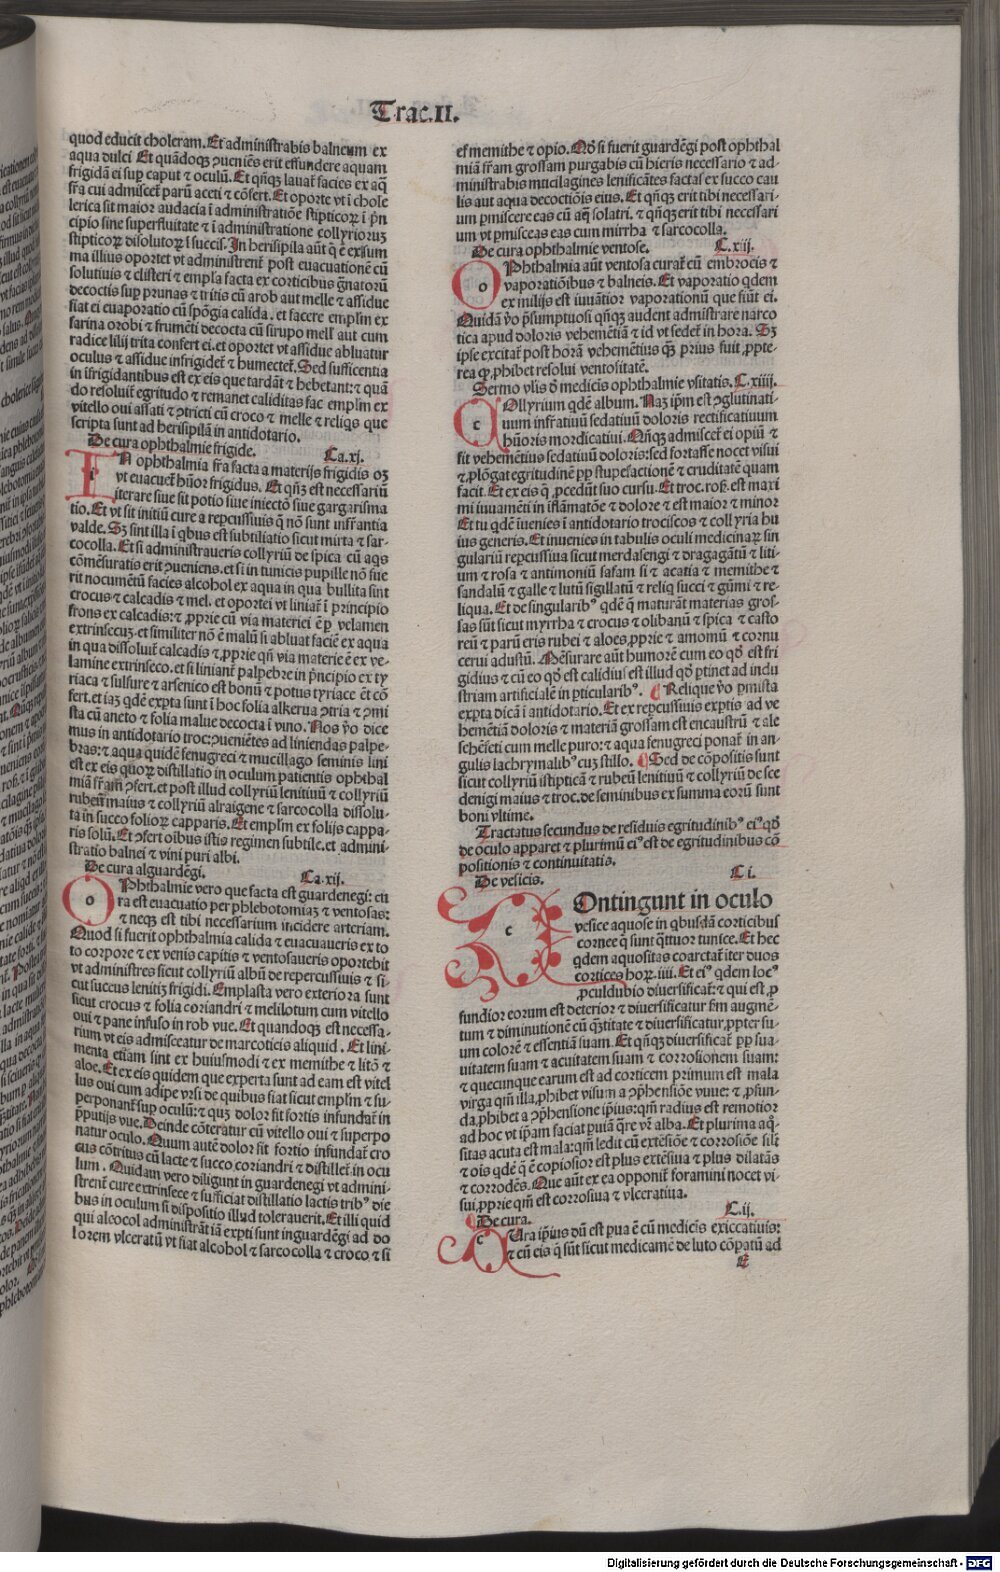 Trac.II.
quod educit choleram. Et administrabis balneum ex
aqua dulci Et quãdoqz ꝯueniẽs erit effundere aquam
frigidã ei sup caput ⁊ oculũ. Et qñqz lauat facies ex aq̃
fr̃a cui admiscet parũ aceti ⁊ cõfert. Et oporte vt ĩ chole
lerica sit maior audacia ĩ administratiõe stipticoꝝ ĩ pn̄
cipio sine superfluitate ⁊ ĩ administratione collyriorũ
stipticoꝝ disolutoꝝ ĩ succis. In herisipila aũt q̃ ẽ ex sum
ma illius oportet vt administrent post euacuationẽ cũ
solutiuis ⁊ clisteri ⁊ empla facta ex corticibus gñatorũ
decoctis sup prunas ⁊ tritis cũ arob aut melle ⁊ assidue
fiat ei euaporatio cũ spõgia calida. et facere emplm ex
farina orobi ⁊ frumẽti decocta cũ sirupo mell aut cum
radice lilij trita confert ei. et oportet vt assidue abluatur
oculus ⁊ assidue infrigidet ⁊ humectet. Sed sufficentia
in ĩfrigidantibus est ex eis que tardãt ⁊ hebetant: ⁊ quã
do resoluit egritudo ⁊ remanet caliditas fac emplm ex
vitello oui assati ⁊ ꝯtricti cũ croco ⁊ melle ⁊ reliqs que
scripta sunt ad herisipilã in antidotario.
De cura ophthalmie frigide. Ca.xj.
IN ophthalmia fr̃a facta a materijs frigidis oz
vt euacuet hũor frigidus. Et qñz est necessariũ
iterare siue sit potio siue iniectõ siue gargarisma
tio. Et vt sit initiũ cure a repcussiuis q̃ nõ sunt infr̃antia
valde. Sz sint illa ĩ qbus est subtiliatio sicut mirta ⁊ sar-
cocolla. Et si administraueris collyriũ de spica cũ aqs
cõmẽsuratis erit ꝯueniens. et si in tunicis pupille nõ fue
rit nocumẽtũ facies alcohol ex aqua in qua bullita sint
crocus ⁊ calcadis ⁊ mel. et oportet vt liniat ĩ principio
frons ex calcadis: ⁊ ꝓprie cũ via materiei ẽ ꝑ velamen
extrinsecuz. et similiter nõ ẽ malũ si abluat faciẽ ex aqua
in qua dissoluit calcadis ⁊ ꝓprie qñ via materie ẽ ex ve-
lamine extrinseco. et si liniant palpebre in pñcipio ex ty
riaca ⁊ sulfure ⁊ arsenico est bonũ ⁊ potus tyriace ẽt cõ
fert. et iaz qdẽ expta sunt ĩ hoc folia alkerua ꝯtria ⁊ ꝯmi
sta cũ aneto ⁊ folia malue decocta ĩ vino. Nos ꝟo dice
mus in antidotario troc: ꝯueniẽtes ad liniendas palpe-
bras: ⁊ aqua quidẽ fenugreci ⁊ mucillago seminis lini
est ex eis quoꝝ distillatio in oculum patientis ophthal
miã fr̃am ꝯfert. et post illud collyriũ lenitiuũ ⁊ collyriũ
rubeũ maius ⁊ collyriũ alraigene ⁊ sarcocolla dissolu-
ta in succo folioꝝ capparis. Et emplm ex folijs cappa-
ris solũ. Et ꝯfert oibus istis regimen subtile. et admini-
stratio balnei ⁊ vini puri albi.
De cura alguardẽgi. Ca.xij.
OPhthalmie vero que facta est guardenegi: cu
ra est euacuatio per phlebotomiaz ⁊ ventosas:
⁊ necqz est tibi necessarium incidere arteriam.
Quod si fuerit ophthalmia calida ⁊ euacuaueris ex to
to corpore ⁊ ex venis capitis ⁊ ventosaueris oportebit
vt administres sicut collyriũ albũ de repercussiuis ⁊ si-
cut succus lenitiz frigidi. Emplasta vero exteriora sunt
sicut crocus ⁊ folia coriandri ⁊ melilotum cum vitello
oui ⁊ pane infuso in rob vue. Et quandoqz est necessa-
rium vt eis admisceatur de marcoticis aliquid. Et lini-
menta etiam sint ex huiusmodi ⁊ ex memithe ⁊ litõ ⁊
aloe. Et ex eis quidem que experta sunt ad eam est vitel
lus oui cum adipe vrsi de quibus fiat sicut emplm ⁊ su-
perponant sup oculũ: ⁊ quz dolor fit fortis infundat in
pputijs vue. Deinde cõteratur cũ vitello oui ⁊ superpo
natur oculo. Quum autẽ dolor fit fortio infundat cro
cus cõtritus cũ lacte ⁊ succo coriandri ⁊ distillet in ocu
lum. Quidam vero diligunt in guardenegi vt admini-
strent cure extrinsece ⁊ sufficiat distillatio lactis trib⁹ die
bus in oculum si dispositio illud tolerauerit. Et illi quid
qui alcocol administrãt iã expti sunt inguardẽgi ad do
lorem vlceratũ vt fiat alcohol ⁊ sarcocolla ⁊ croco ⁊ si
ef memithe ⁊ opio. Nõ si fuerit guardẽgi post ophthal
miã fr̃am grossam purgabis cũ hieris necessario ⁊ ad-
ministrabis mucilagines lenificãtes factas ex succo cau
lis aut aqua decoctiõis eius. Et qñqz erit tibi necessari-
um ꝑmiscere eas cũ aq̃ solatri. ⁊ qñqz erit tibi necessari
um vt ꝑmisceas eas cum mirrha ⁊ sarcocolla.
De cura ophthalmie ventose. C.xiij.
OPhthalmia aũt ventosa curat cũ embrocis ⁊
vaporatiõibus ⁊ balneis. Et vaporatio qdem
ex milijs est iuuãtior vaporationũ que fiũt ei.
Quidã ꝟo p̃sumptuosi qñqz audent admĩstrare narco
tica apud doloris vehemẽtiã ⁊ id vt sedet in hora. Sz
ipse excitat post horã vehemẽtius qz prius fuit, ꝓpte-
rea qꝫ phibet resolui ventositatẽ.
Sermo vlis ꝟ medicis ophthalmie vsitatis. C.xiiij.
COllyrium qdẽ album. Naz ipm est ꝯglutinati-
uum infratiuũ sedatiuũ doloris rectificatiuum
hũoris mordicatiui. Qñqz admiscet ei opiũ ⁊
fit vehemẽtius sedatiuũ doloris: sed fortasse nocet visui
⁊ ꝓlõgat egritudinẽ ꝓp stupefactionẽ ⁊ cruditatẽ quam
facit. Et ex eis q̃ ꝓcedũt suo cursu. Et troc. ros. est maxi
mi iuuamẽti in ĩflãmatõe ⁊ dolore ⁊ est maior ⁊ minor
Et tu qdẽ iuenies ĩ antidotario trociscos ⁊ collyria hu
ius generis. Et inuenies in tabulis oculi medicinaꝝ sin
gulariũ repcussiua sicut merdasengi ⁊ dragagãtũ ⁊ liti-
um ⁊ rosa ⁊ antimoniũ safam si ⁊ acatia ⁊ memithe ⁊
sandalũ ⁊ galle ⁊ lutũ sigillatũ ⁊ reliq succi ⁊ gũmi ⁊ re-
liqua. Et de singularib⁹ qdẽ q̃ maturãt materias gros-
sas sũt sicut myrrha ⁊ crocus ⁊ olibanũ ⁊ spica ⁊ casto
reũ ⁊ parũ eris rubei ⁊ aloes, ꝓprie ⁊ amomũ ⁊ cornu
cerui adustũ. Mẽsurare aũt humorẽ cum eo qð est fri
gidius ⁊ cũ eo qð est calidius est illud qð ꝑtinet ad indu
striam artificialẽ in pticularib⁹. Relique ꝟo ꝑmista
expta dicã ĩ antidotario. Et ex repcussiuis exptis ad ve
hemẽtiã doloris ⁊ materiã grossam est encaustrũ ⁊ ale
schẽieti cum melle puro: ⁊ aqua fenugreci ponat in an-
gulis lachrymalib⁹ cuz stillo. Sed de cõpositis sunt
sicut collyriũ istipticã ⁊ rubeũ lenitiuũ ⁊ collyriũ de sce
denigi maius ⁊ troc. de seminibus ex summa eorũ sunt
boni vltime.
Tractatus secundus de residuis egritudinib⁹ ei⁹ qð
de oculo apparet ⁊ plurimũ ei⁹ est de egritudinibus cõ
positionis ⁊ continuitatis.
De vesicis. C i.
COntingunt in oculo
vesice aquose in qbusdã corticibus
cornee q̃ sunt q̃ttuor tunice. Et hec
qdem aquositas coarctat iter duos
cortices hoꝝ. iiij. Et ei⁹ qdem loc⁹
ꝓculdubio diuersificat: ⁊ qui est ꝓ
fundior eorum est deterior ⁊ diuersificatur ẽm augmẽ-
tum ⁊ diminutionẽ cũ q̃titate ⁊ diuersificatur, ꝓpter su-
um colorẽ ⁊ essentiã suam. Et qñqz diuersificat ꝓp sua-
uitatem suam ⁊ acuitatem suam ⁊ corrosionem suam:
⁊ quecunque earum est ad corticem primum est mala
virga qm̃ illa, phibet visum a ꝯphensiõe vuue: ⁊ ꝓfun-
da, phibet a ꝯphensione ipsius: qm̃ radius est remotior
ad hoc vt ipam faciat puiã q̃re vr̃ alba. Et plurima aq̃-
sitas acuta est mala: qm̃ ledit cũ extẽsiõe ⁊ corrosiõe sil
⁊ ois qdẽ q̃ ẽ copiosior est plus extẽsiua ⁊ plus dilatãs
⁊ corrodẽs. Que aũt ex ea opponit foramini nocet vi-
sui, ꝓprie qm̃ est corrosiua ⁊ vlceratiua.
De cura. C.ij.
CUra ipsius dũ est parua ẽ cũ medicis exiccatiuis:
⁊ cũ eis q̃ sũt sicut medicamẽ de luto cõpatũ ad
E
Digitalisierung gefördert durch die Deutsche Forschungsgemeinschaft - DFG